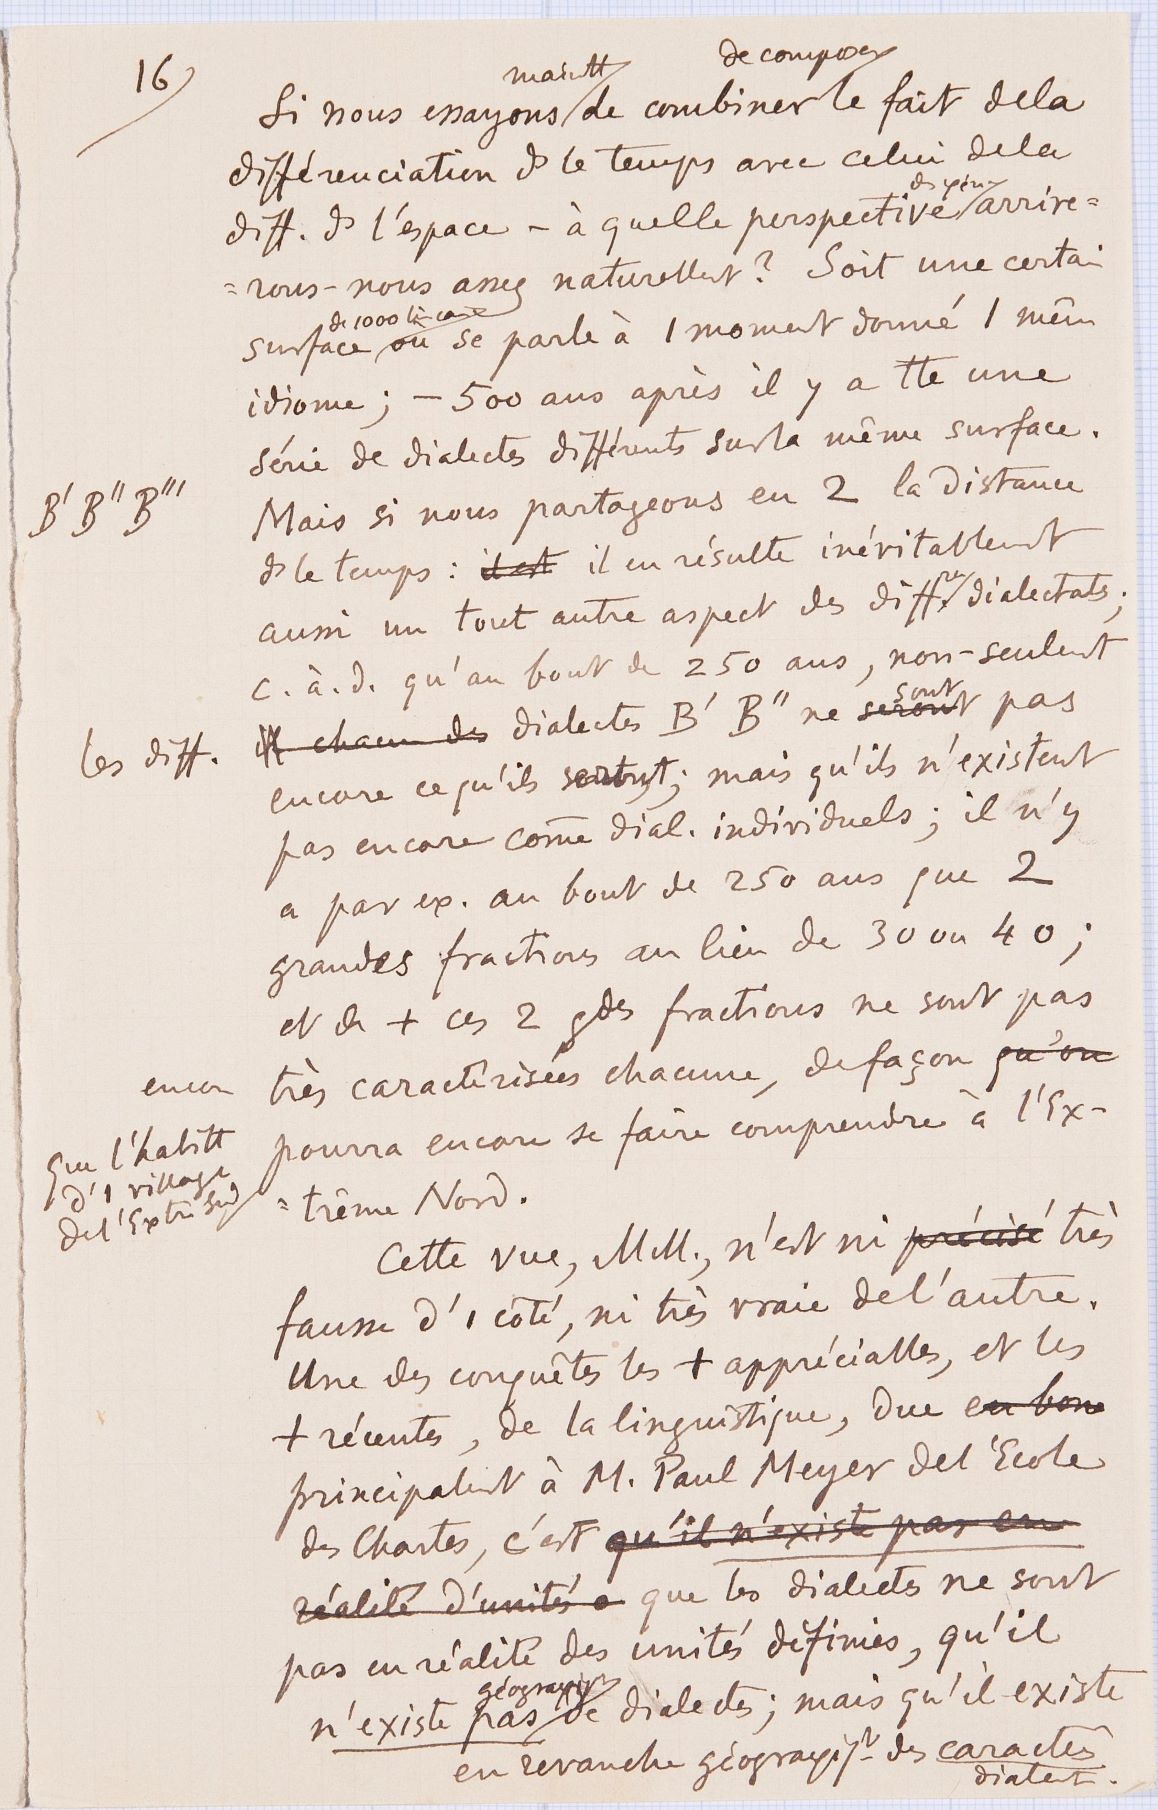 16)
maintt de composer
Si nous essayons de combiner le fait dela
différenciation ds le temps avec celui dela
diff. ds l'espace – à quelle perspective arrive=
=rons-nous assez naturellent? Soit une certai
de 1000 carré
surface où se parle à 1 moment donné 1 mêm
idiome; – 500 ans après il y a tte une
série de dialectes différents surla même surface.
B' B'' B'''
Mais si nous partageons en 2 la distance
ds le temps : il est il en résulte inévitablemt
aussi un tout autre aspect des diff.ces dialectals;
c. à. d. qu'au bout de 250 ans, non-seulent
les diff.
Il chacun des dialectes B' B'' ne seront sont pas
encore ce qu'ils ; mais qu'ils n'existent
pas encore come dial. individuels; il n'y
a par ex. au bout de 250 ans que 2
grandes fractions au lieu de 30 ou 40;
et de + ces 2 gdes fractions ne sont pas
encor
très caractérisées chacune, defaçon qu'on
que l'habitt
d'1 village
del'Extr Sud
pourra encore se faire comprendre à l'Ex-
=trême Nord.
Cette vue, MM., n'est ni précisé très
fausse d'1 côté, ni très vraie del'autre.
Une des conquêtes les + appréciables, et les
+ récentes, de la linguistique, due en bone
principalent à M. Paul Meyer del'Ecole
des Chartes, c'est qu'il n'existe pas en
réalité d'unités que les dialectes ne sont
pas en réalité des unités définies, qu'il
géographiqt
n'existe pas de dialectes; mais qu'il existe
en revanche géographiqt des caractès
dialect.